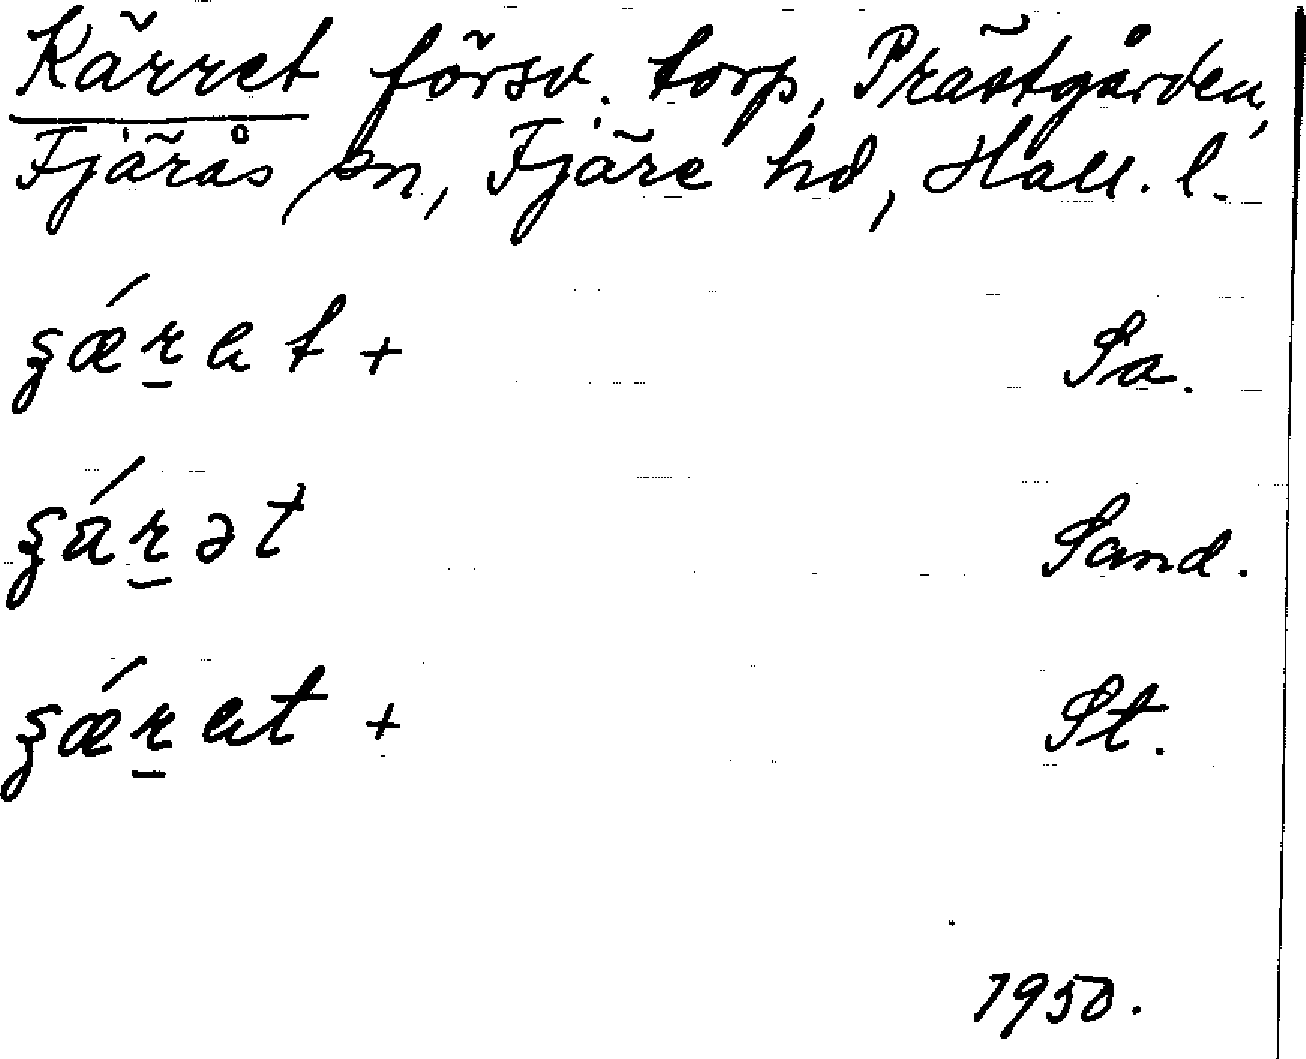 Kärret försv. torp, Prästgården,
Fjärås sn, Fjäre hd, Hall. l.
Sa.
Sand.
St.
1950.